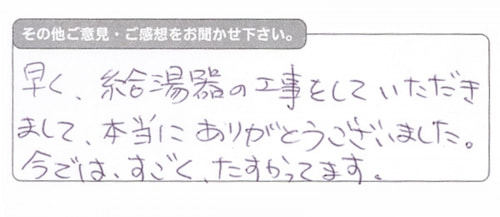 その他ご意見・ご感想をお聞かせ下さい。
早く、給湯器の工事をしていただき
まして、本当にありがとうございました。
今では、すごく、たすかってます。